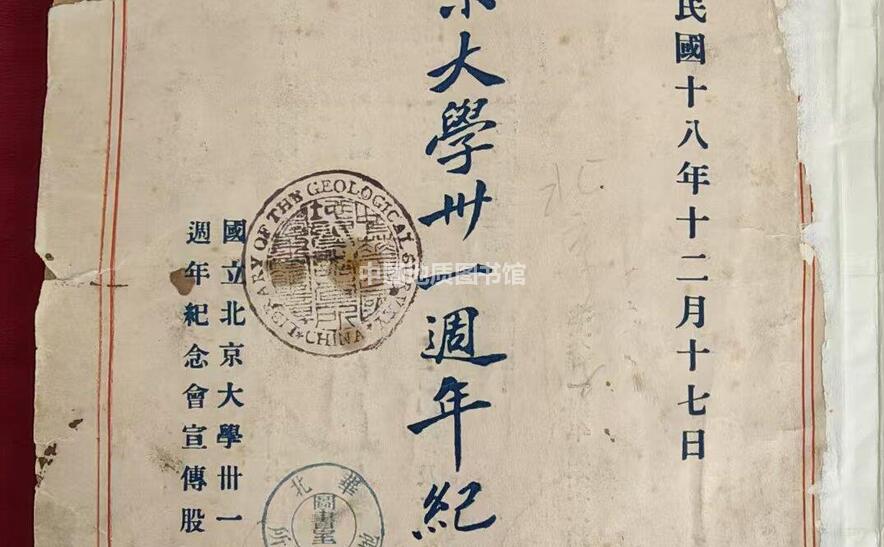 民國十八年十二月十七日
京大學卅一週年紀
國立北京大學卅一
週年紀念會宣傳股
LIBRARY OF THE GEOLOGICAL SURVEY
CHINA
中國地质图书馆
北
圖書室